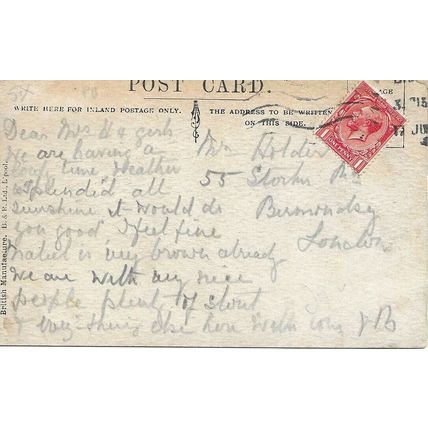 POST CARD.
WRITE HERE FOR INLAND POSTAGE ONLY.
THE ADDRESS TO BE WRITTEN
ON THIS SIDE.
AGE
ONE PENNY
British Manufacture. B. & R. Ltd., L'pool.
Dear Mrs & girls
We are having a
time Weather
splendid all
sunshine it would do
you good I feel fine
Mabel is very brown already
We are with very nice
people plenty of stout
& every thing else
Mrs Holder
55
Bermondsey
London